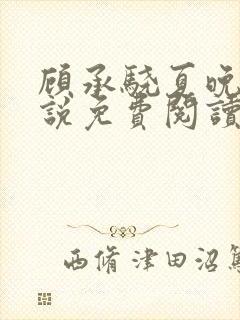 顾承驍夏晚
說免費閱讀
西脩津田沼篤